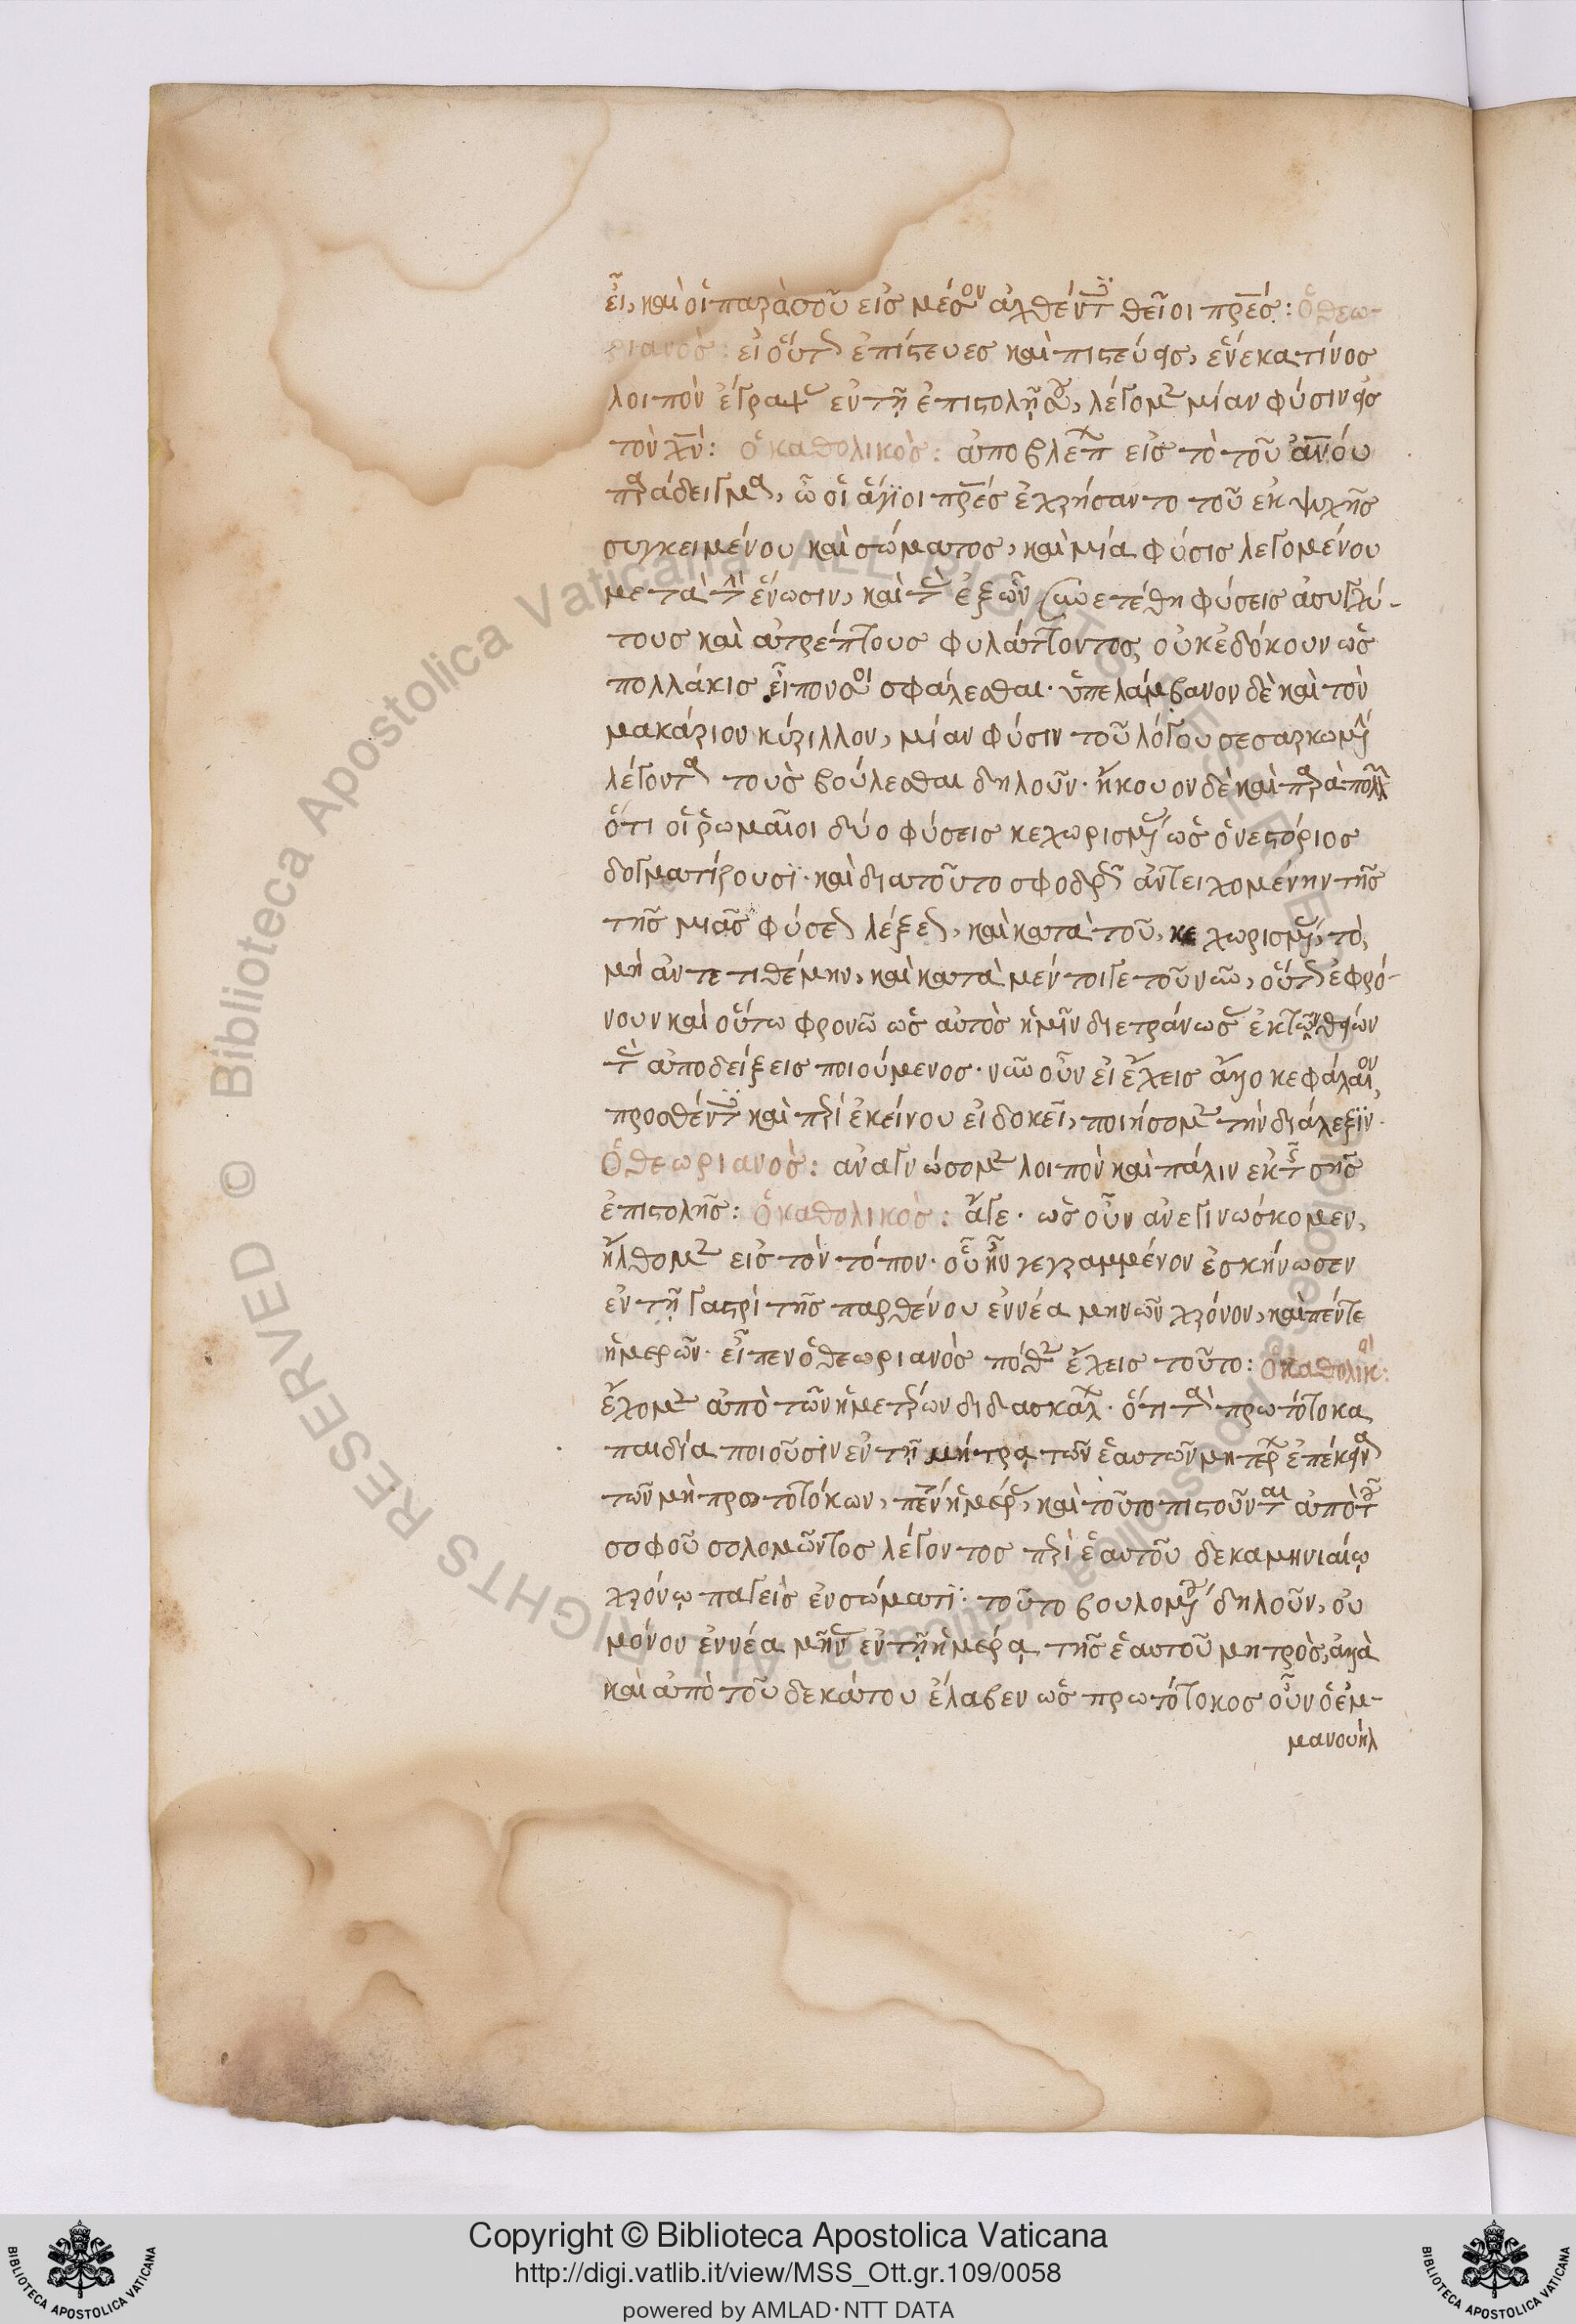 εἶ, καὶ οἱ παρὰ σοῦ εἰς μέσον ἀχθέντες θεῖοι πρες: ὁ θεω-
ριανὸς: εἰ οὕτως ἐπίστευες καὶ πιστεύεις, ἕνεκα τίνος
λοιπὸν ἔγραψας ἐν τῇ ἐπιστολῇ σου, λέγομεν μίαν φύσιν εἰς
τὸν χν: ὁ καθολικὸς: ἀποβλέπων εἰς τὸ τοῦ ανου
παράδειγμα, ὧ οἱ ἅγιοι πρες ἐχρήσαντο τοῦ ἐκ ψυχῆς
συγκειμένου καὶ σώματος, καὶ μία φύσις λεγομένου
μετὰ τὴν ἕνωσιν, καὶ τὰς ἐξ ὧν συνετέθη φύσεις ἀσυγχύ-
τους καὶ ἀτρέπτους φυλάττοντος, οὐκ ἐδόκουν ὡς
πολλάκις εἶπον σοι σφάλεσθαι· ὑπελάμβανον δὲ καὶ τὸν
μακάριον κύριλλον, μίαν φύσιν τοῦ λόγου σεσαρκωμένην
λέγοντα τοῦς βούλεσθαι δηλοῦν· ἤκουον δὲ καὶ παρὰ πολλῶν
ὅτι οἱ ῥωμαῖοι δύο φύσεις κεχωρισμένας ὡς ὁ νεστόριος
δογματίζουσι· καὶ διατοῦτο σφοδρῶς ἀντειχομένην τῆς
τῆς μιᾶς φύσεως λέξεως, καὶ κατὰ τοῦ, κεχωρισμένας, τὸ,
μὴ ἀντετιθέμην, καὶ κατὰ μέν τοιγε τοῦ νῦν, οὕτως ἐφρό-
νουν καὶ οὕτω φρονῶ ὡς αὐτὸς ἡμῖν διετράνωσας ἐκ τῶν θείων
τὰς ἀποδείξεις ποιούμενος· νῦν οὖν εἰ ἔχεις ἄλλο κεφάλαιον,
προσθέντες καὶ περὶ ἐκείνου εἰ δοκεῖ, ποιήσομεν τὴν διάλεξιν·
Ὁ θεωριανὸς: ἀναγνώσομεν λοιπὸν καὶ πάλιν ἐκ τῆς σῆς
ἐπιστολῆς: ὁ καθολικὸς: ἄγε· ὡς οὖν ἀνεγινώσκομεν,
ἤλθομεν εἰς τὸν τόπον· οὗ ἦν γεγραμμένον ἐσκήνωσεν
ἐν τῇ γαστρὶ τῆς παρθένου ἐννέα μηνῶν χρόνον, καὶ πέντε
ἡμερῶν· εἶπεν ὁ θεωριανὸς πόθεν ἔχεις τοῦτο: ὁ καθολικὸς:
ἔχομεν ἀπὸ τῶν ἡμετέρων διδασκάλων· ὅτι τὰ πρωτότοκα
παιδία ποιοῦσιν ἐν τῇ μήτρᾳ τῶν ἑαυτῶν μητέρων ἐπέκεινα
τῶν μὴ πρωτοτόκων, πέντε ἡμέρας, καὶ τοῦτο πιστοῦνται ἀπὸ τοῦ
σοφοῦ σολομῶντος λέγοντος περὶ ἑαυτοῦ δεκαμηνιαίῳ
χρόνῳ παγεὶς ἐν σώματι· τοῦτο βουλομένου δηλοῦν, οὐ
μόνον ἐννέα μῆνας ἐν τῇ ἡμέρᾳ τῆς ἑαυτοῦ μητρὸς, ἀλλὰ
καὶ ἀπὸ τοῦ δεκάτου ἔλαβεν ὡς πρωτότοκος οὖν ὁ ἐμ-
μανουὴλ
Copyright © Biblioteca Apostolica Vaticana
http://digi.vatlib.it/view/MSS_Ott.gr.109/0058
powered by AMLAD·NTT DATA